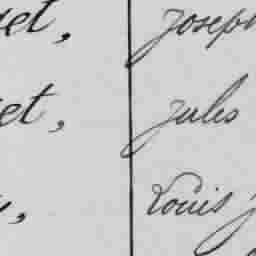 et, Joseph
et, Jules
Louis J